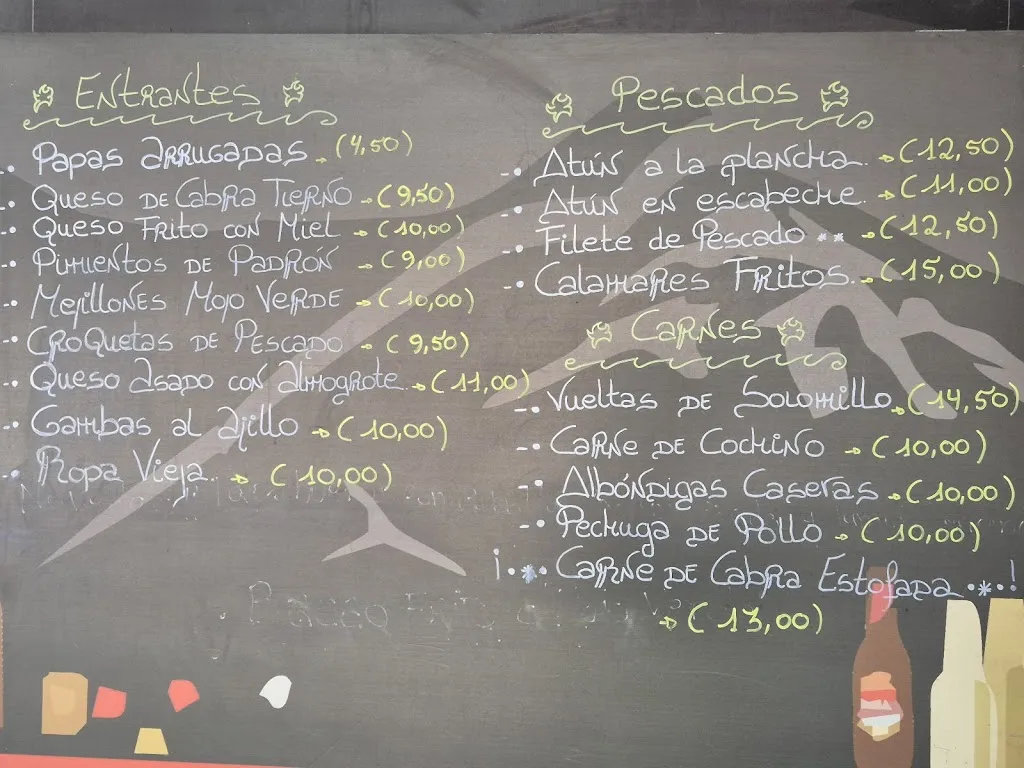 Entrantes
-. Papas Arrugadas → (4,50)
-. Queso de Cabra Tierno → (9,50)
-. Queso Frito con Miel → (10,00)
-. Pimientos de Padrón → (9,00)
-. Mejillones Mojo Verde → (10,00)
-. Croquetas de Pescado → (9,50)
-. Queso Asado con Almogrote → (11,00)
-. Gambas al Ajillo → (10,00)
-. Ropa Vieja → (10,00)
Pescados
-. Atún a la plancha → (12,50)
-. Atún en escabeche → (11,00)
-. Filete de Pescado ** → (12,50)
-. Calamares Fritos → (15,00)
Carnes
-. Vueltas de Solomillo → (14,50)
-. Carne de Cochino → (10,00)
-. Albóndigas Caseras → (10,00)
-. Pechuga de Pollo → (10,00)
¡..*. Carne de Cabra Estofada .*.!
→ (13,00)